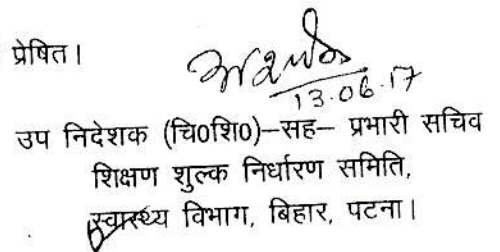 प्रेषित।
13.06.17
उप निदेशक (चि0शि0)–सह– प्रभारी सचिव
शिक्षण शुल्क निर्धारण समिति,
स्वास्थ्य विभाग, बिहार, पटना।